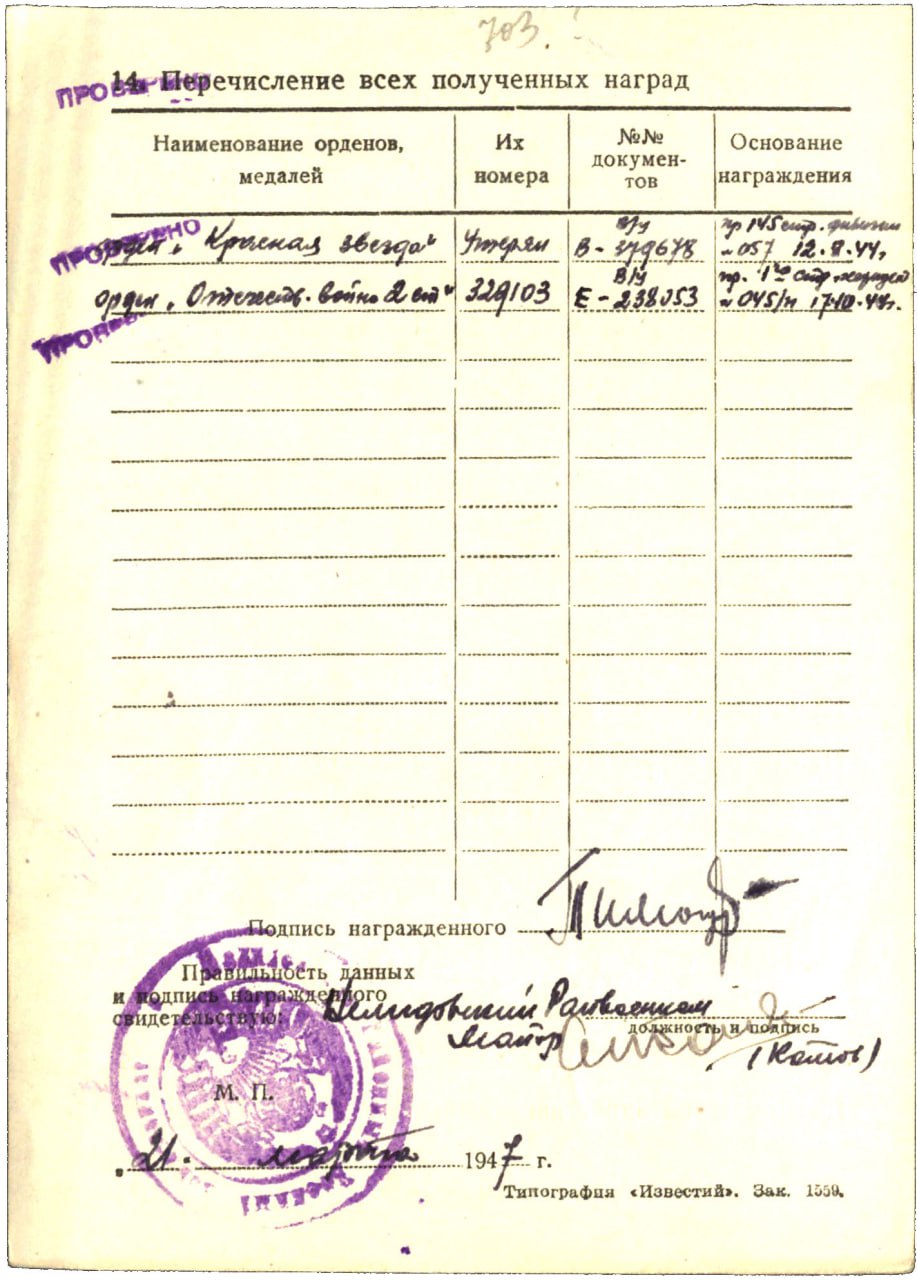 703.
ПРОВЕРЕНО
14. Перечисление всех полученных наград
Наименование орденов, медалей
Их номера
№№ документов
Основание награждения
ПРОВЕРЕНО
орден „Красная звезда“ Утерян В/у В-379678 пр 145 стр. дивизии № 057 12.II.44г
орден „Отечеств. война 2 ст“ 329103 В/у Е-238053 пр. 1го стр. № 045/н 17.10.44г.
ПРОВЕРЕНО
Подпись награжденного
Правильность данных
и подпись награжденного
свидетельствую: Нелидовский Райвоенком
должность и подпись
Майор (Котов)
М. П.
„21. марта 1947 г.
Типография «Известий». Зак. 1559.